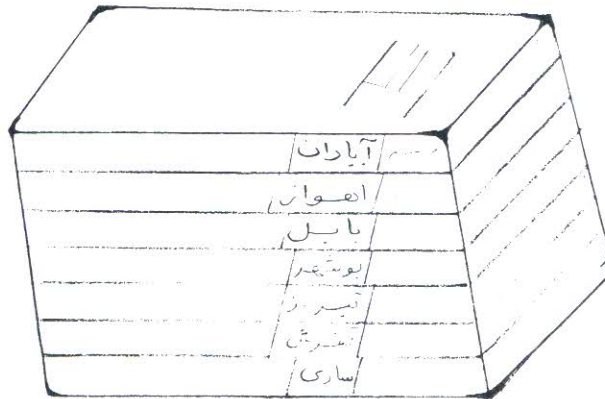 آبادان
اهواز
بابل
بوشهر
تبریز
تفرش
ساری